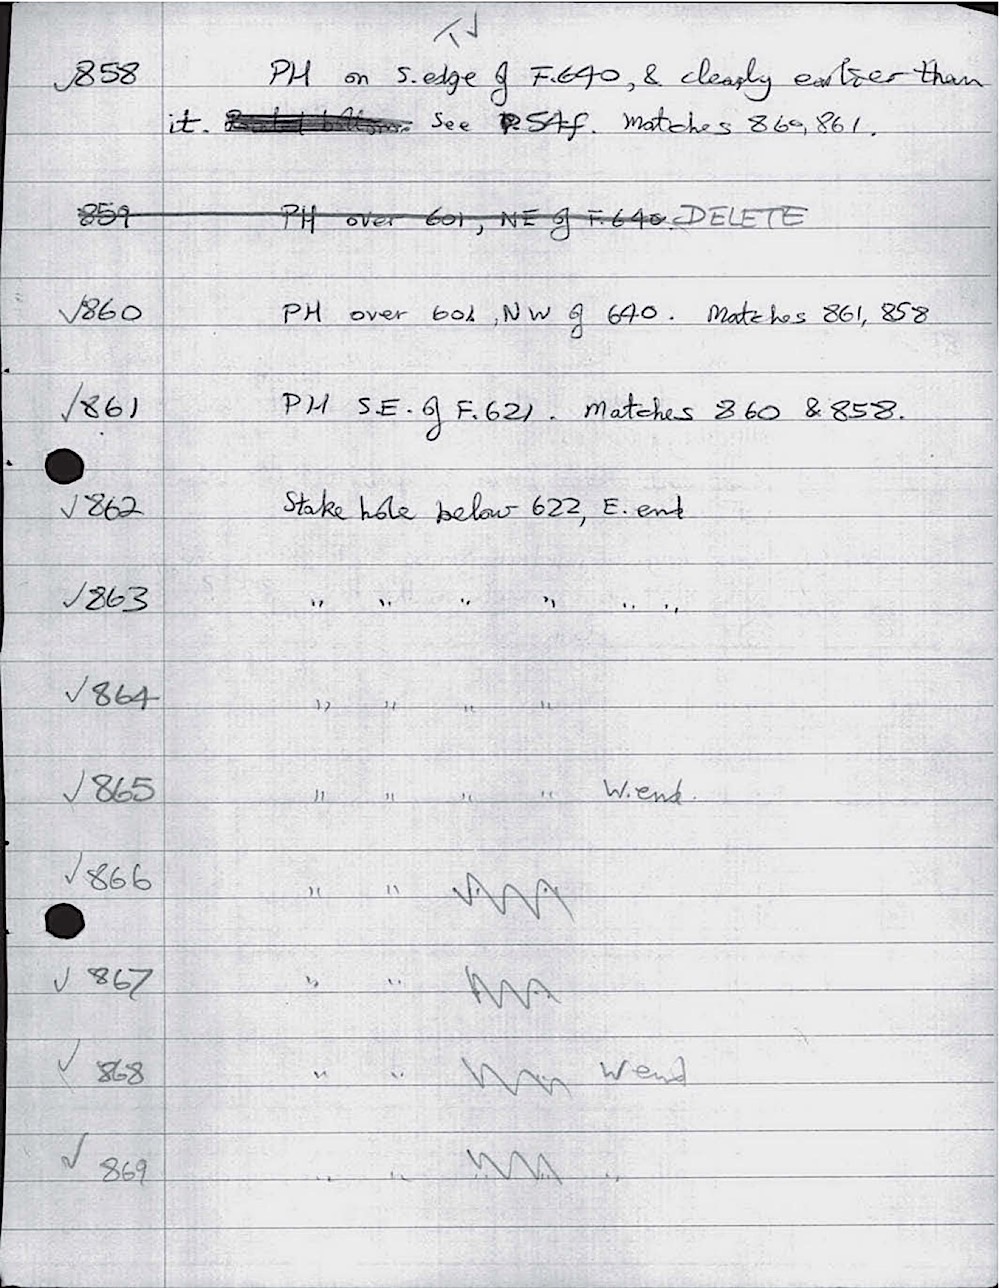 ✓858 PH on S. edge of F.640, & clearly earlier than
it. See P.54f. Matches 860, 861.
859 PH over 601, NE of F.640. DELETE
✓860 PH over 601, NW of 640. Matches 861, 858
✓861 PH S.E. of F.621. Matches 860 & 858.
✓862 Stake hole below 622, E. end
✓863 " " " " " "
✓864 " " " "
✓865 " " " " W. end.
✓866 " "
✓867 " "
✓868 " " W end
✓869 " " " " "